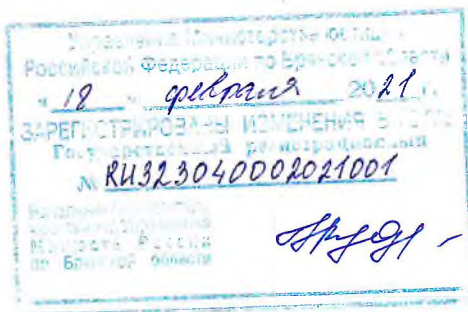 Управление Министерства юстиции
Российской Федерации по Брянской области
" 18 " февраля 2021 г.
ЗАРЕГИСТРИРОВАНЫ ИЗМЕНЕНИЯ В
Государственный регистрационный
№ RU323040002021001
России
по Брянской области